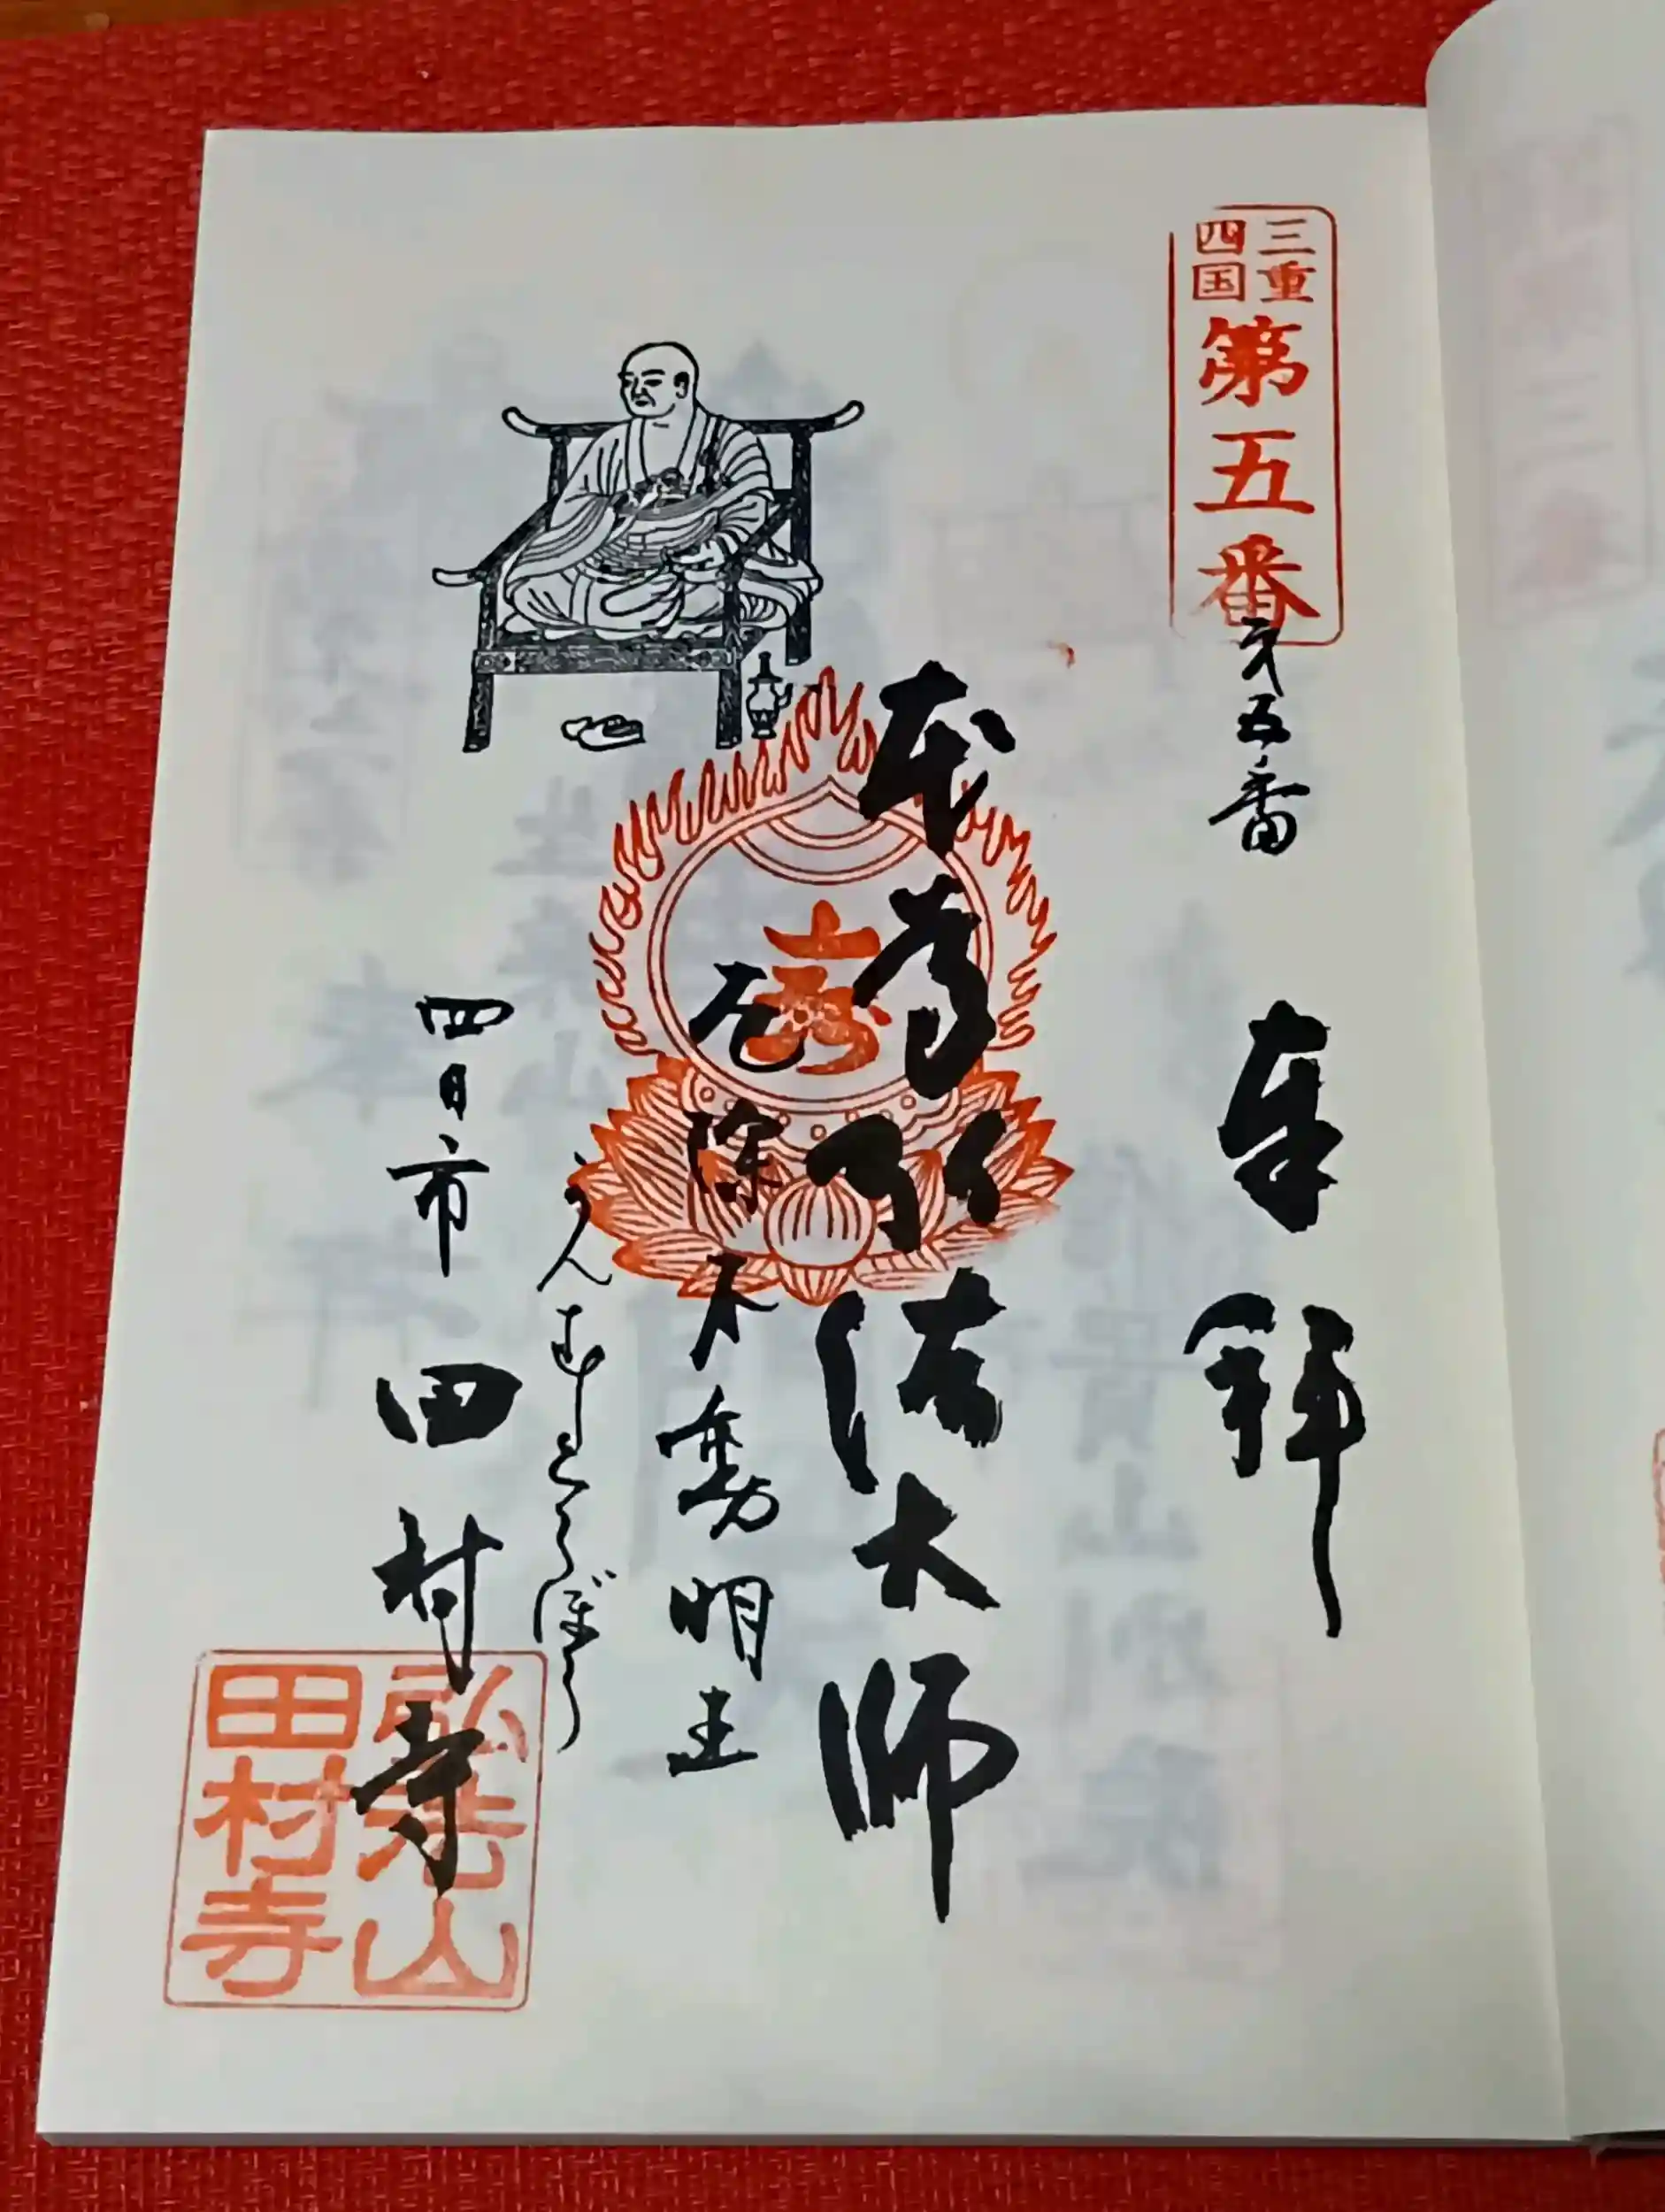 三重
四国
第五番
第五番
奉拝
本尊弘法大師
厄除不動明王
四日市 田村寺
弘法山
田村寺